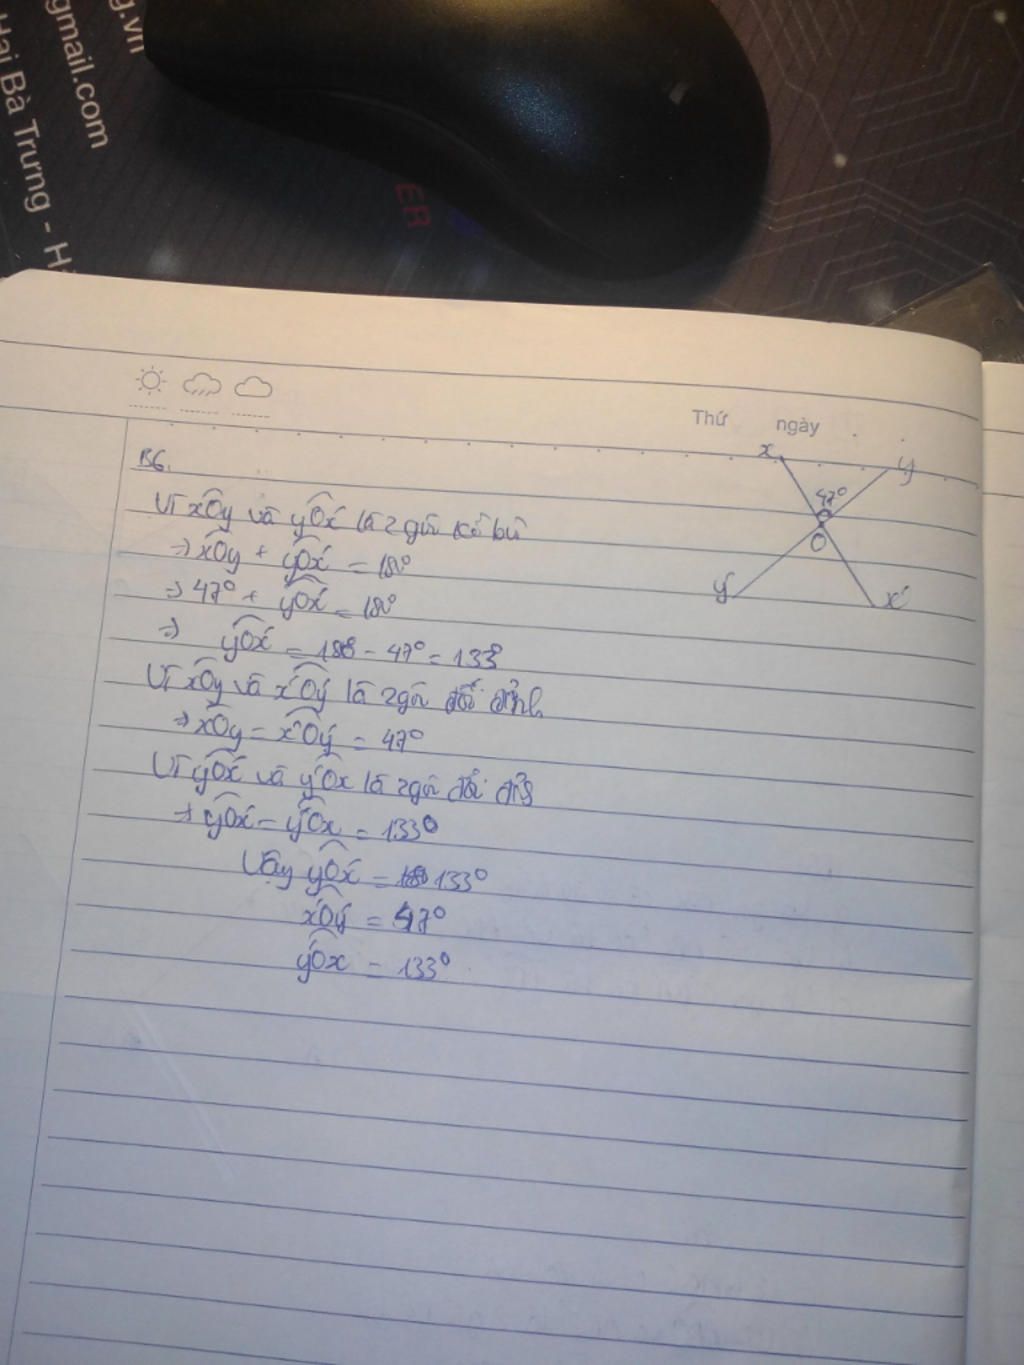 g.vn
gmail.com
Hai Bà Trưng - H
ER
Thứ ngày
B6.
x
y
47°
O
y'
x'
Vì xOy và yOx' là 2 góc kề bù
=> xOy + yOx' = 180°
=> 47° + yOx' = 180°
=> yOx' = 180 - 47° = 133°
Vì xOy và x'Oy' là 2 góc đối đỉnh
=> xOy = x'Oy' = 47°
Vì yOx' và y'Ox là 2 góc đối đỉnh
=> yOx' = y'Ox = 133°
Vậy yOx' = 133°
x'Oy' = 47°
y'Ox = 133°